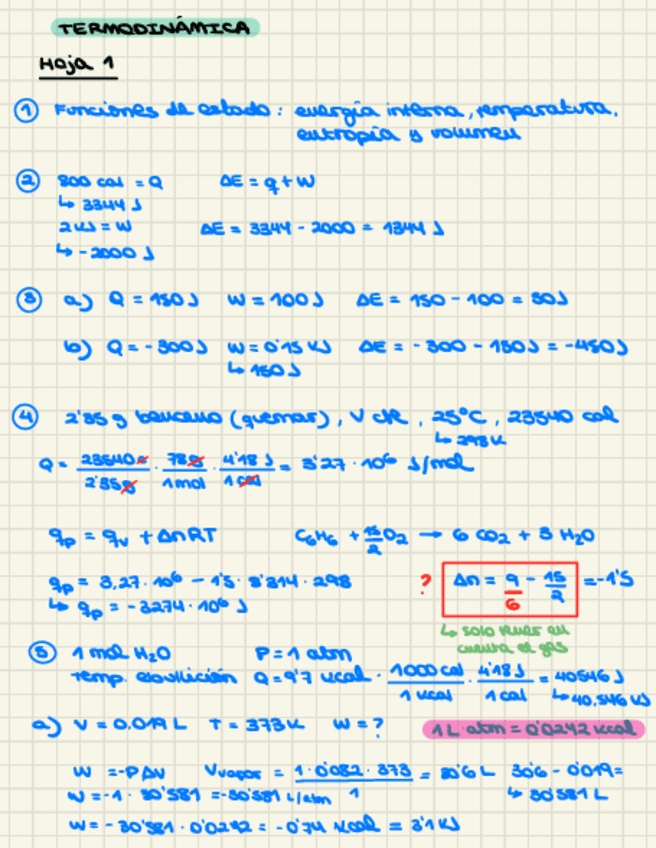 TERMODINÁMICA
Hoja 1
① Funciones de estado: energía interna, temperatura,
entropía y volumen
② 800 cal = Q ΔE = q + W
↳ 3344 J
2 kJ = W ΔE = 3344 - 2000 = 1344 J
↳ -2000 J
③ a) Q = 150 J W = 100 J ΔE = 150 - 100 = 50 J
b) Q = -300 J W = 0'15 kJ ΔE = -300 - 150 J = -450 J
↳ 150 J
④ 2'35 g benceno (quemar), V cte, 25°C, 23540 cal
↳ 298 K
Q = 23540 c / 2'35 g · 78 g / 1 mol · 4'18 J / 1 cal = 3'27 · 10⁶ J/mol
qp = qv + ΔnRT C₆H₆ + 15/2 O₂ → 6 CO₂ + 3 H₂O
qp = 3,27 · 10⁶ - 1'5 · 8'314 · 298 ? Δn = 9/6 - 15/2 = -1'5
↳ qp = -3274 · 10⁶ J
↳ solo tener en
cuenta el gas
⑤ 1 mol H₂O P = 1 atm
Temp. ebullición Q = 9'7 kcal · 1000 cal / 1 kcal · 4'18 J / 1 cal = 40546 J
↳ 40.546 kJ
a) V = 0.019 L T = 373 K W = ? 1 L·atm = 0'0242 kcal
W = -PΔV Vvapor = 1 · 0'082 · 373 / 1 = 30'6 L 30'6 - 0'019 =
W = -1 · 30'581 = -30'581 L/atm ↳ 30'581 L
W = -30'581 · 0'0242 = -0'74 kcal = 3'1 kJ